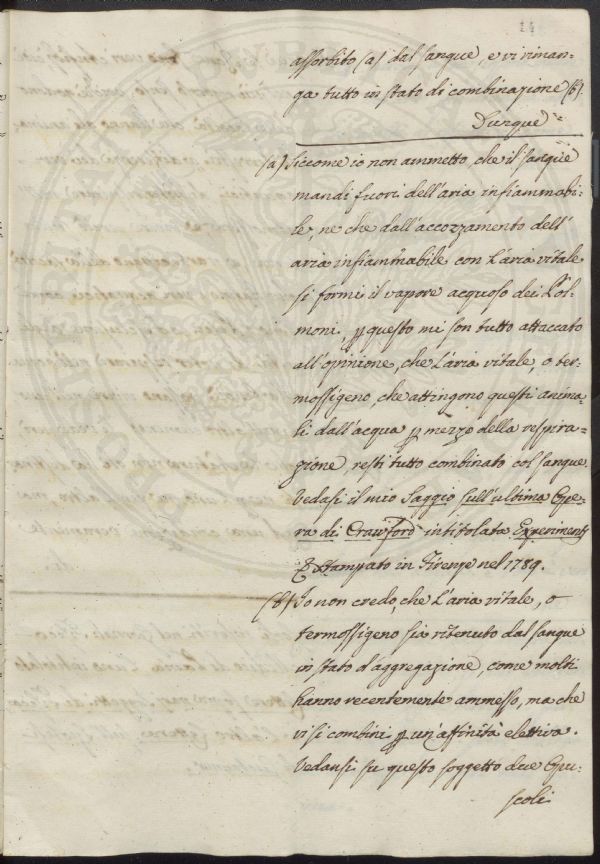 24
assorbito (a) dal sangue, e vi riman=
ga tutto in stato di combinazione (b).
Dunque=
(a) Siccome io non ammetto, che il sangue
mandi fuori dell'aria infiammabi=
le, ne che dall'accozzamento dell'
aria infiammabile con l'aria vitale
si formi il vapore acquoso dei Pol=
moni, p questo mi son tutto attaccato
all'opinione, che l'aria vitale, o ter=
mossigeno, che attingono questi anima=
li dall'acqua p mezzo della respira=
zione resti tutto combinato col sangue.
Vedasi il mio Saggio sull'ultima Ope=
ra di Crawford intitolata Experiments
& stampato in Firenze nel 1789.
(b) Io non credo, che l'aria vitale, o
termossigeno sia ritenuto dal sangue
in stato d'aggregazione, come molti
hanno recentemente ammesso, ma che
vi si combini p un'affinità elettiva.
Vedansi su questo soggetto due Opu=
scoli